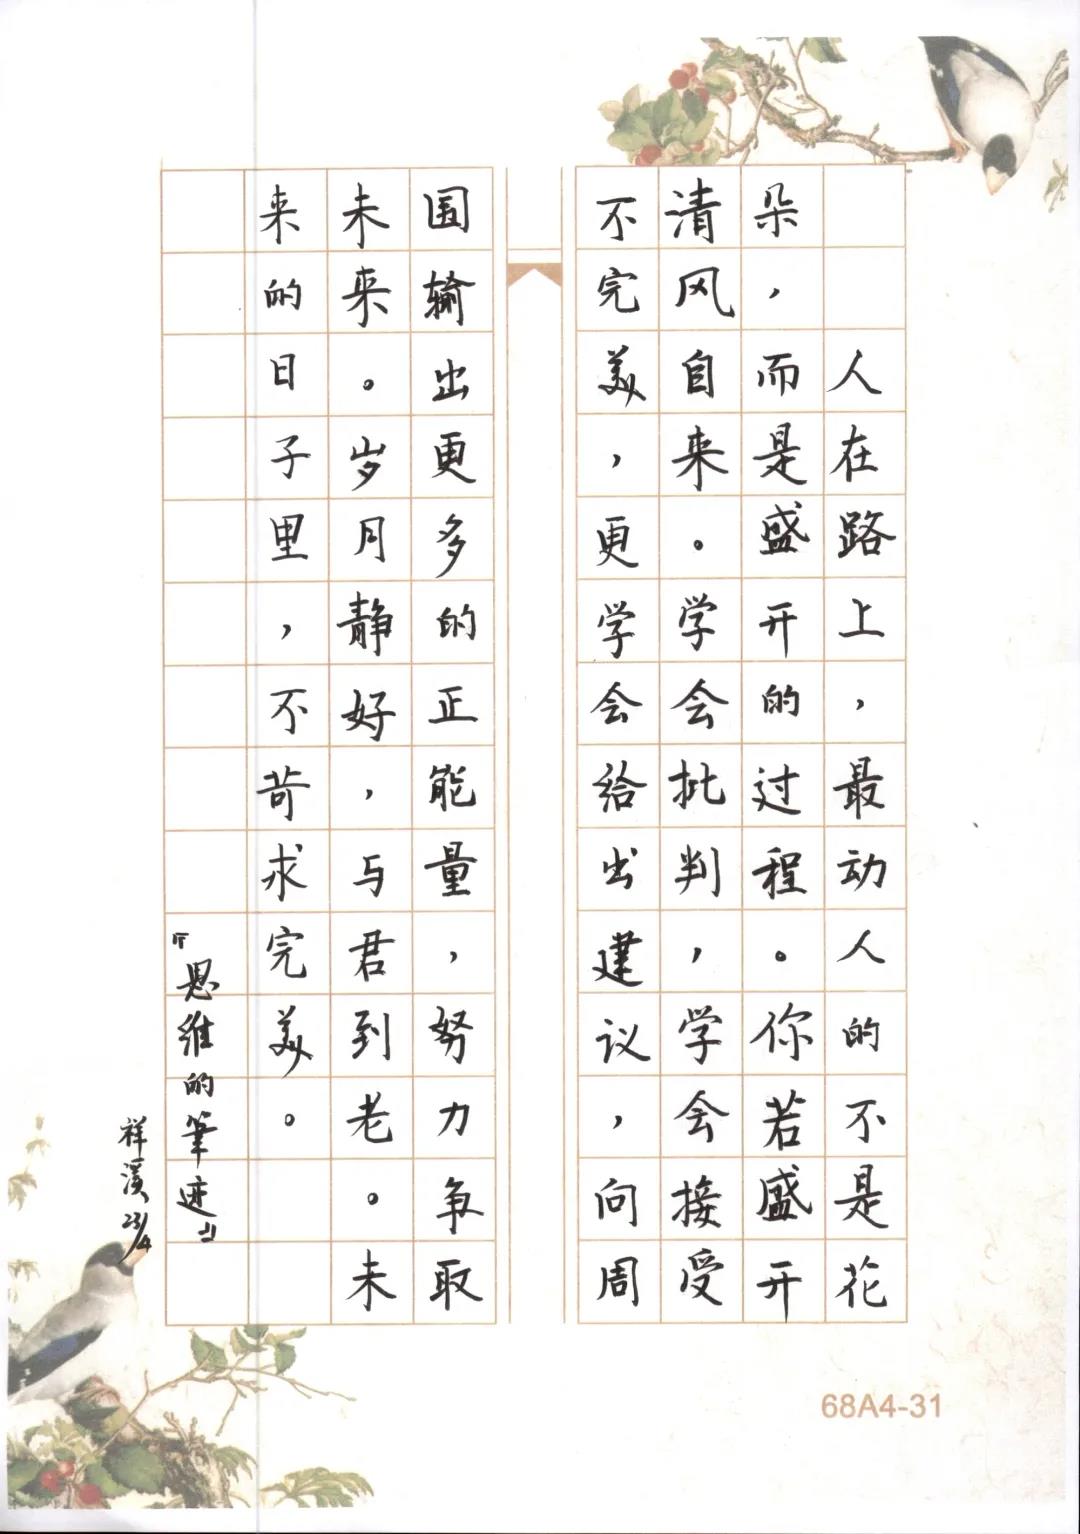 人在路上，最动人的不是花
朵，而是盛开的过程。你若盛开
清风自来。学会批判，学会接受
不完美，更学会给出建议，向周
围输出更多的正能量，努力争取
未来。岁月静好，与君到老。未
来的日子里，不苛求完美。
『思维的筆迹』
祥溪 23/4
68A4-31